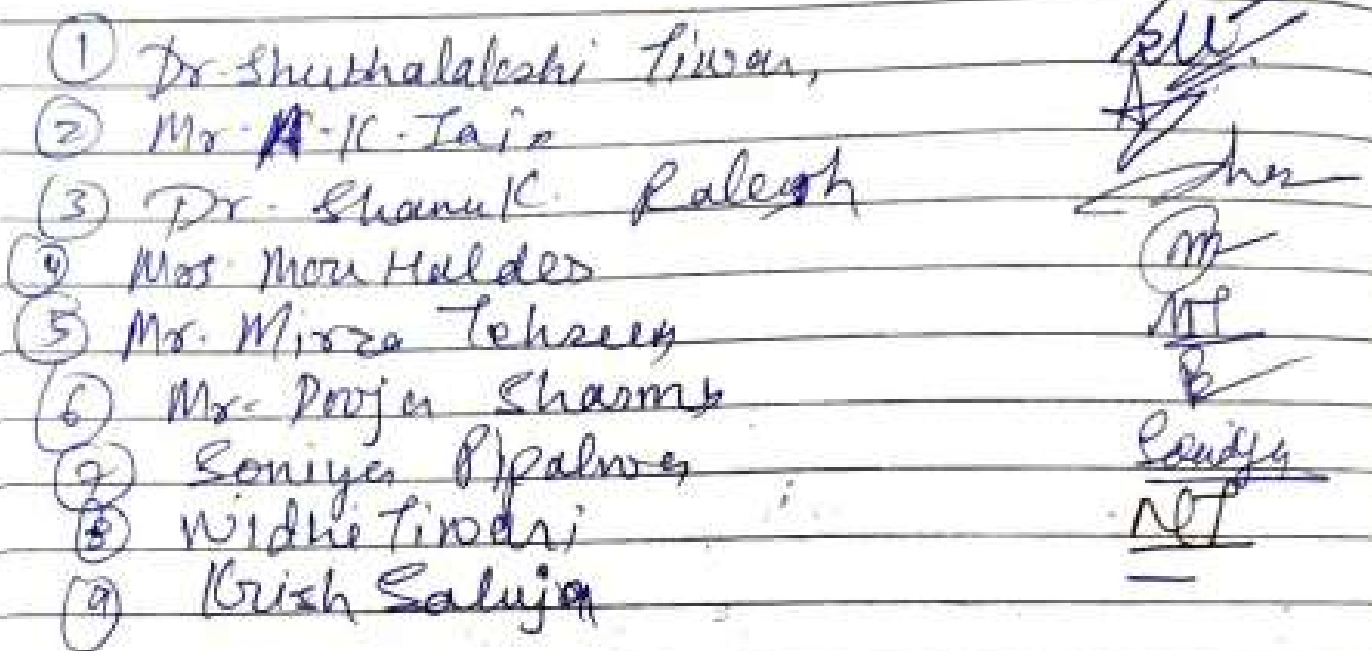 1 Dr. Shubhalakshi Tiwari,
2 Mr. A. K. Jain
3 Dr. Shanu K. Rakesh
4 Mrs. Mou Halder
5 Mr. Mirza Tehseen MT
6 Mr. Pooja Sharma
7 Soniya
8 Nidhi Tiwari NT
9 Krish Saluja